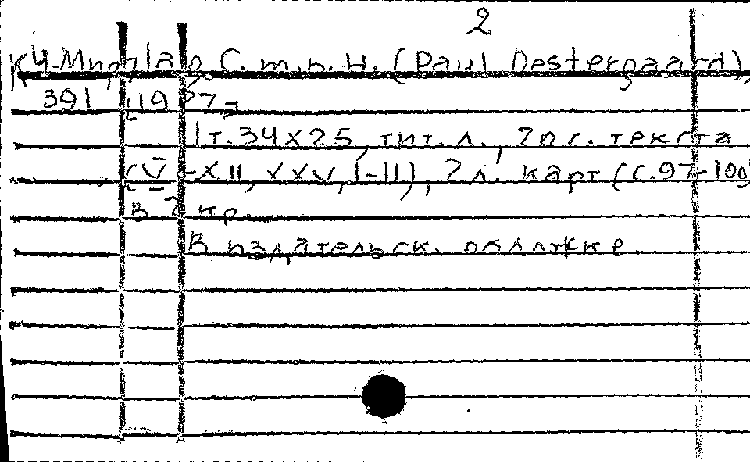 2
К4-Мир/ С.m.b.H. (Paul Oestergaard),
391 [1927]
1т. 34х25, тит. л., 2 л. текста
(V-XII, XXV, I-II), 2 л. карт (с. 97-100)
в 2 кр.
В издательск. обложке